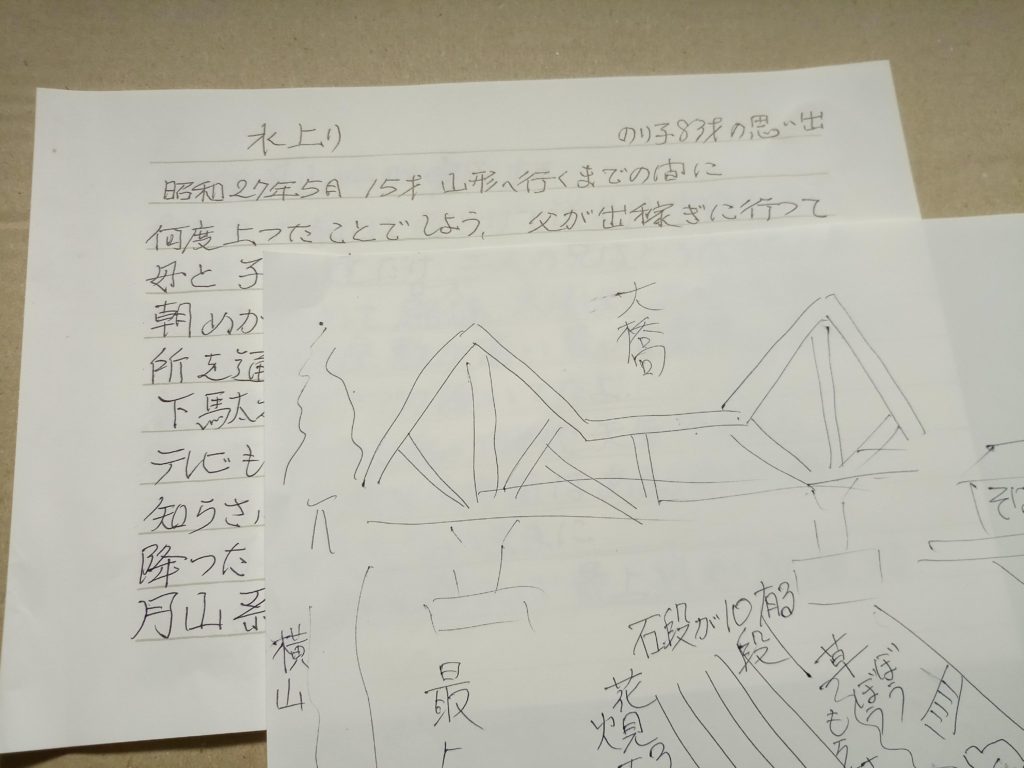 水上り
のり子83才の思い出
昭和27年5月 15才 山形へ行くまでの間に
何度上つたことでしよう、父が出稼ぎに行つて
母と子
朝めか
所を通
下駄
テレビも
知らさ
降つた
月山系
大橋
横山
最上
石段が10有る
段
花
火見る
草
ぼうぼう
そば